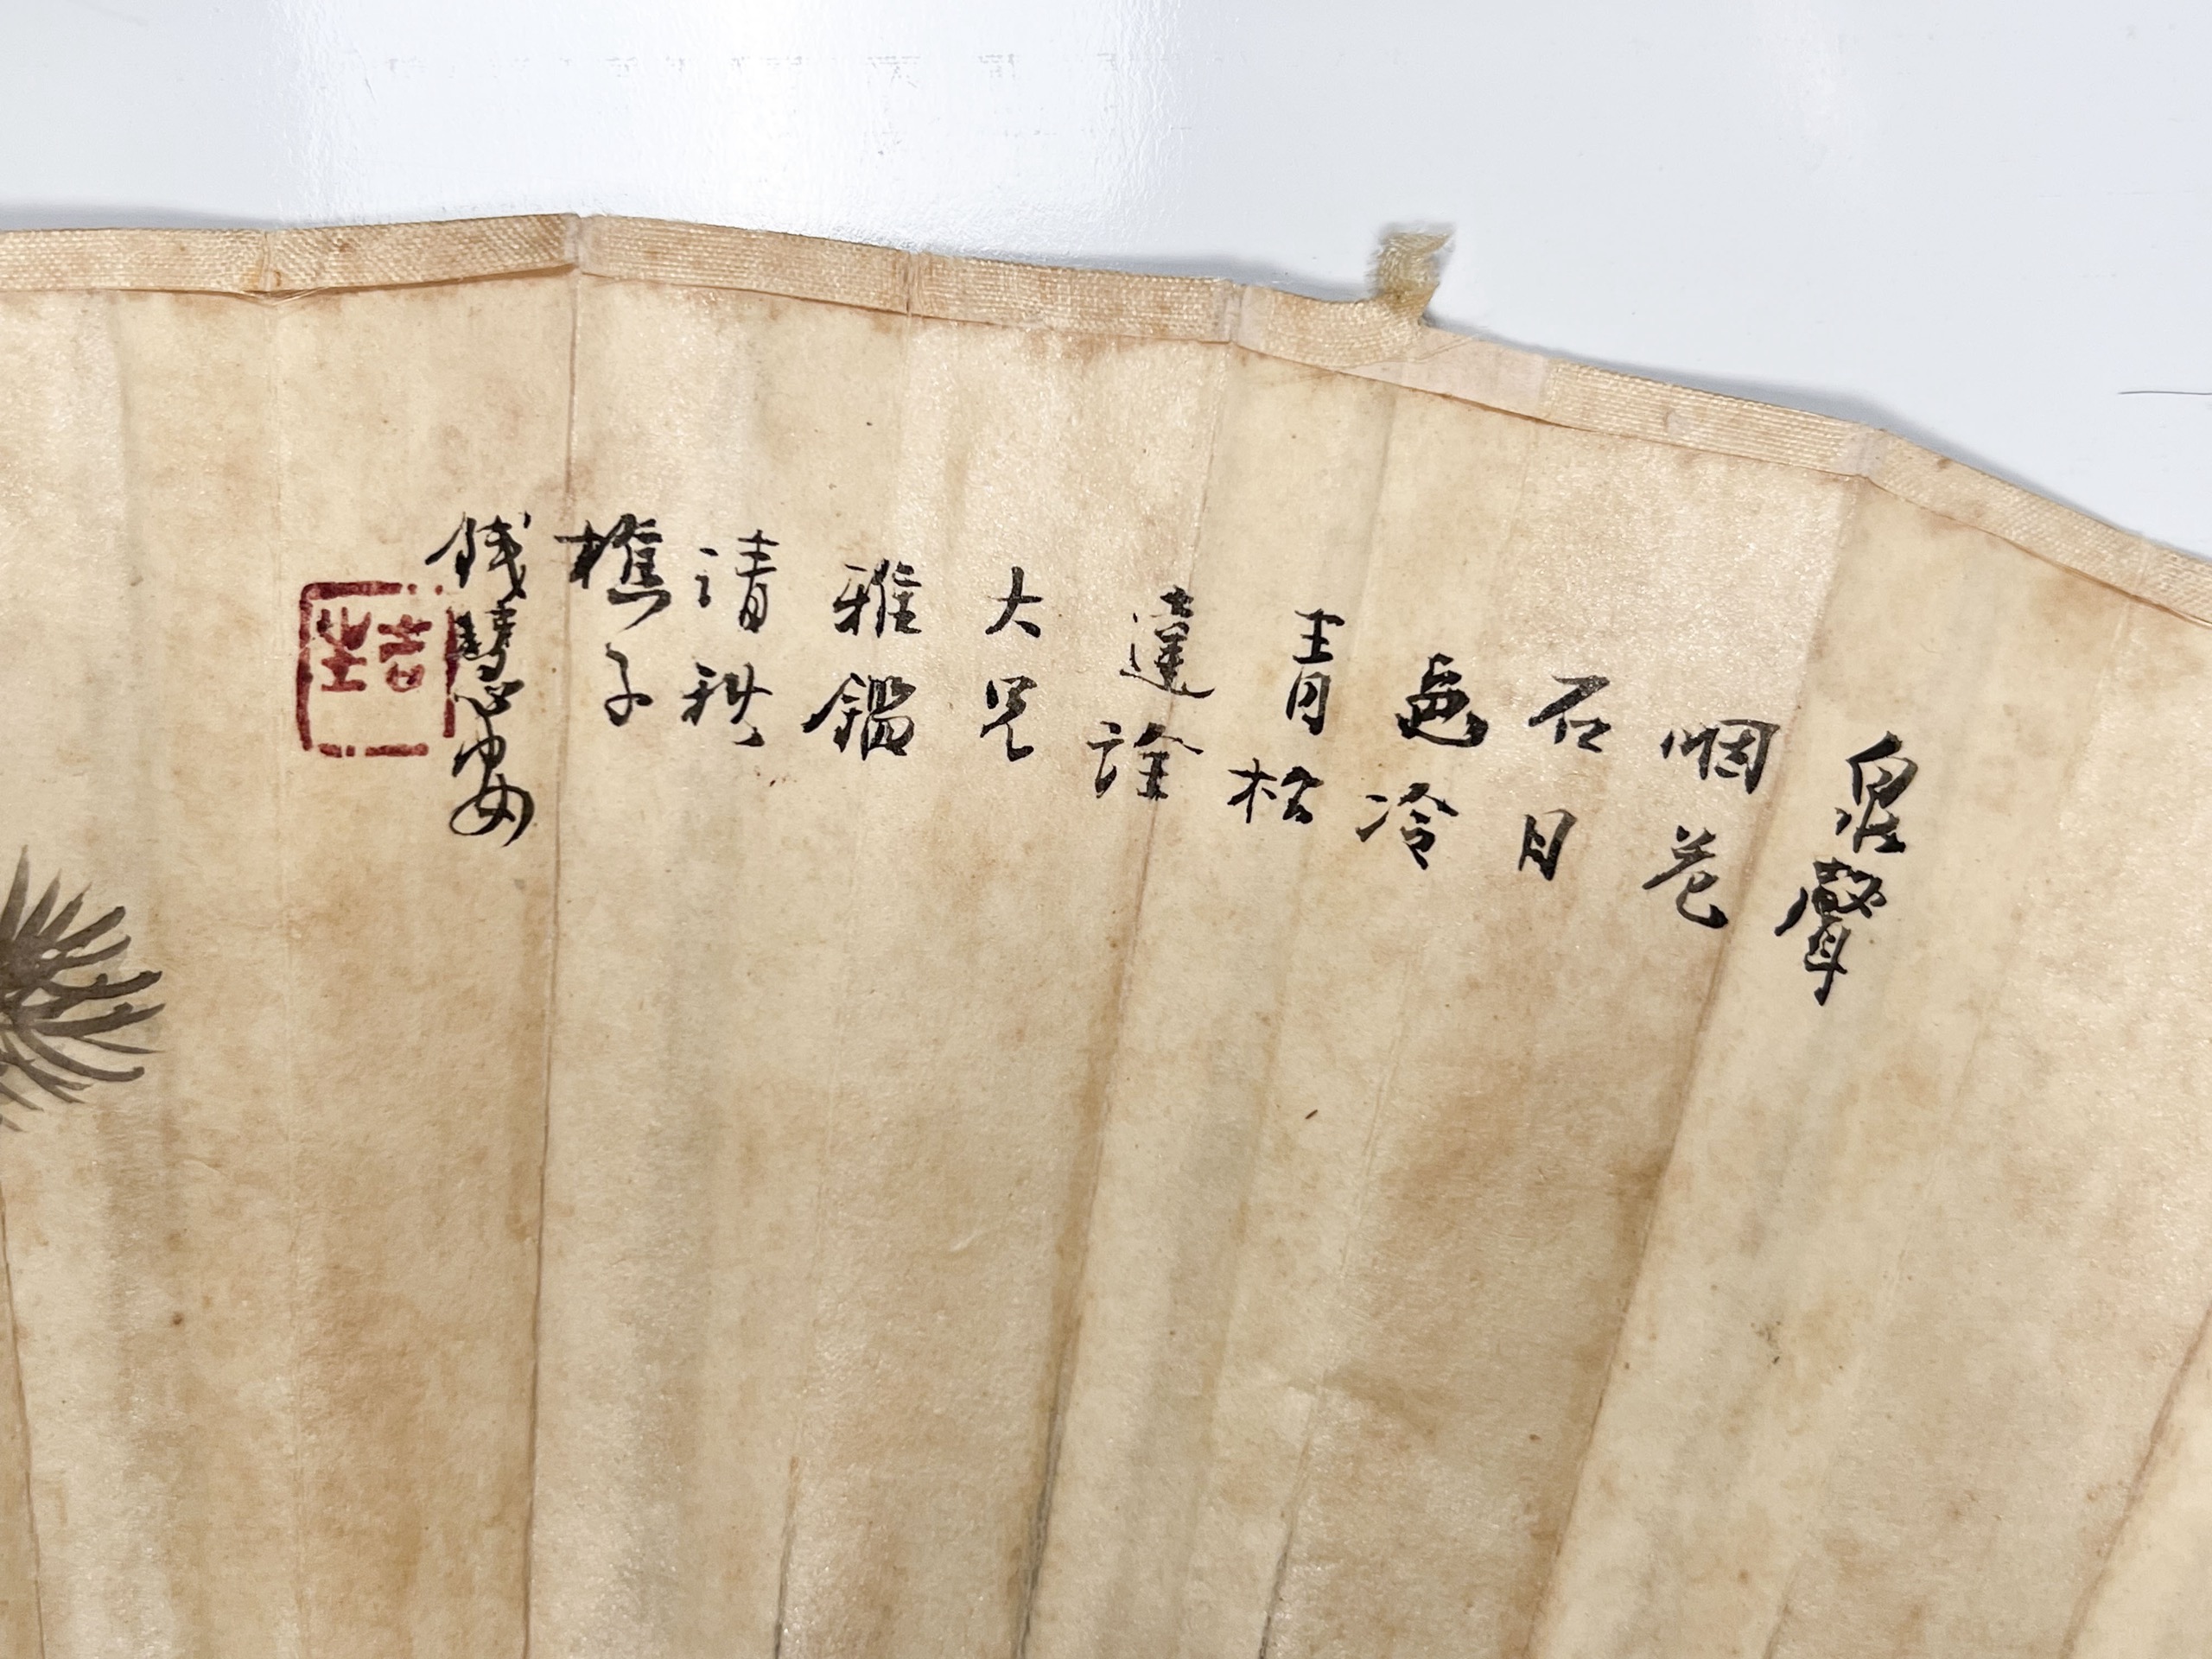 泉聲
咽危
石日
色冷
青松
達詮
大兄
雅鑑
清秋
樵子
錢慧安